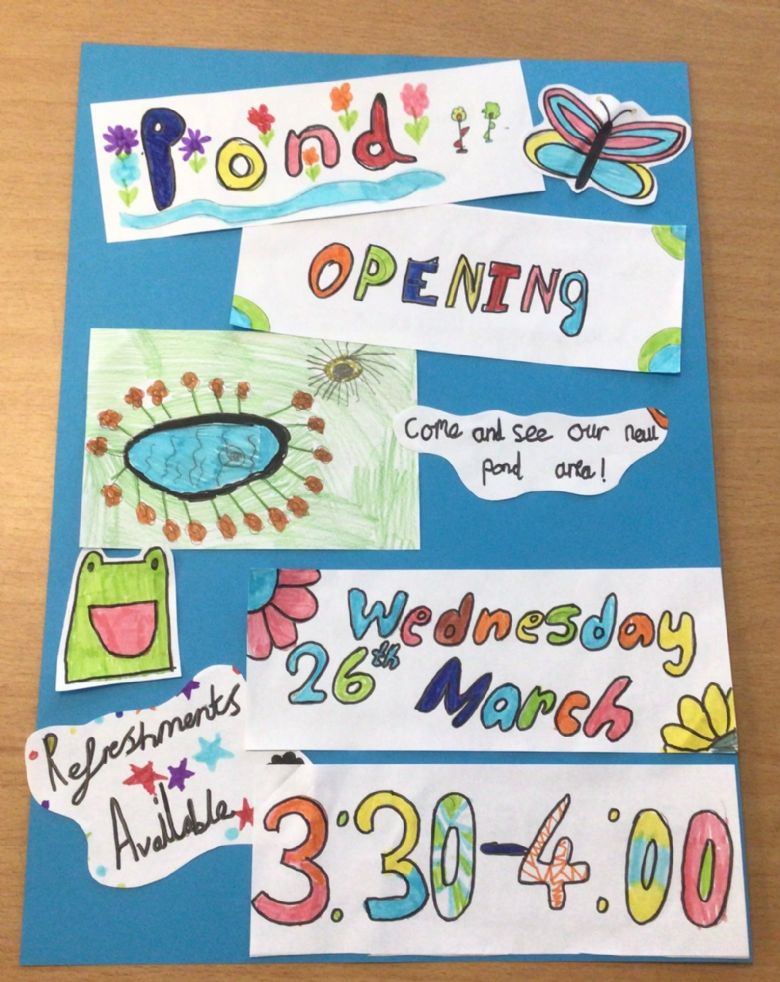 Pond
OPENING
Come and see our new
pond area!
Wednesday
26th March
Refreshments
Available
3:30-4:00